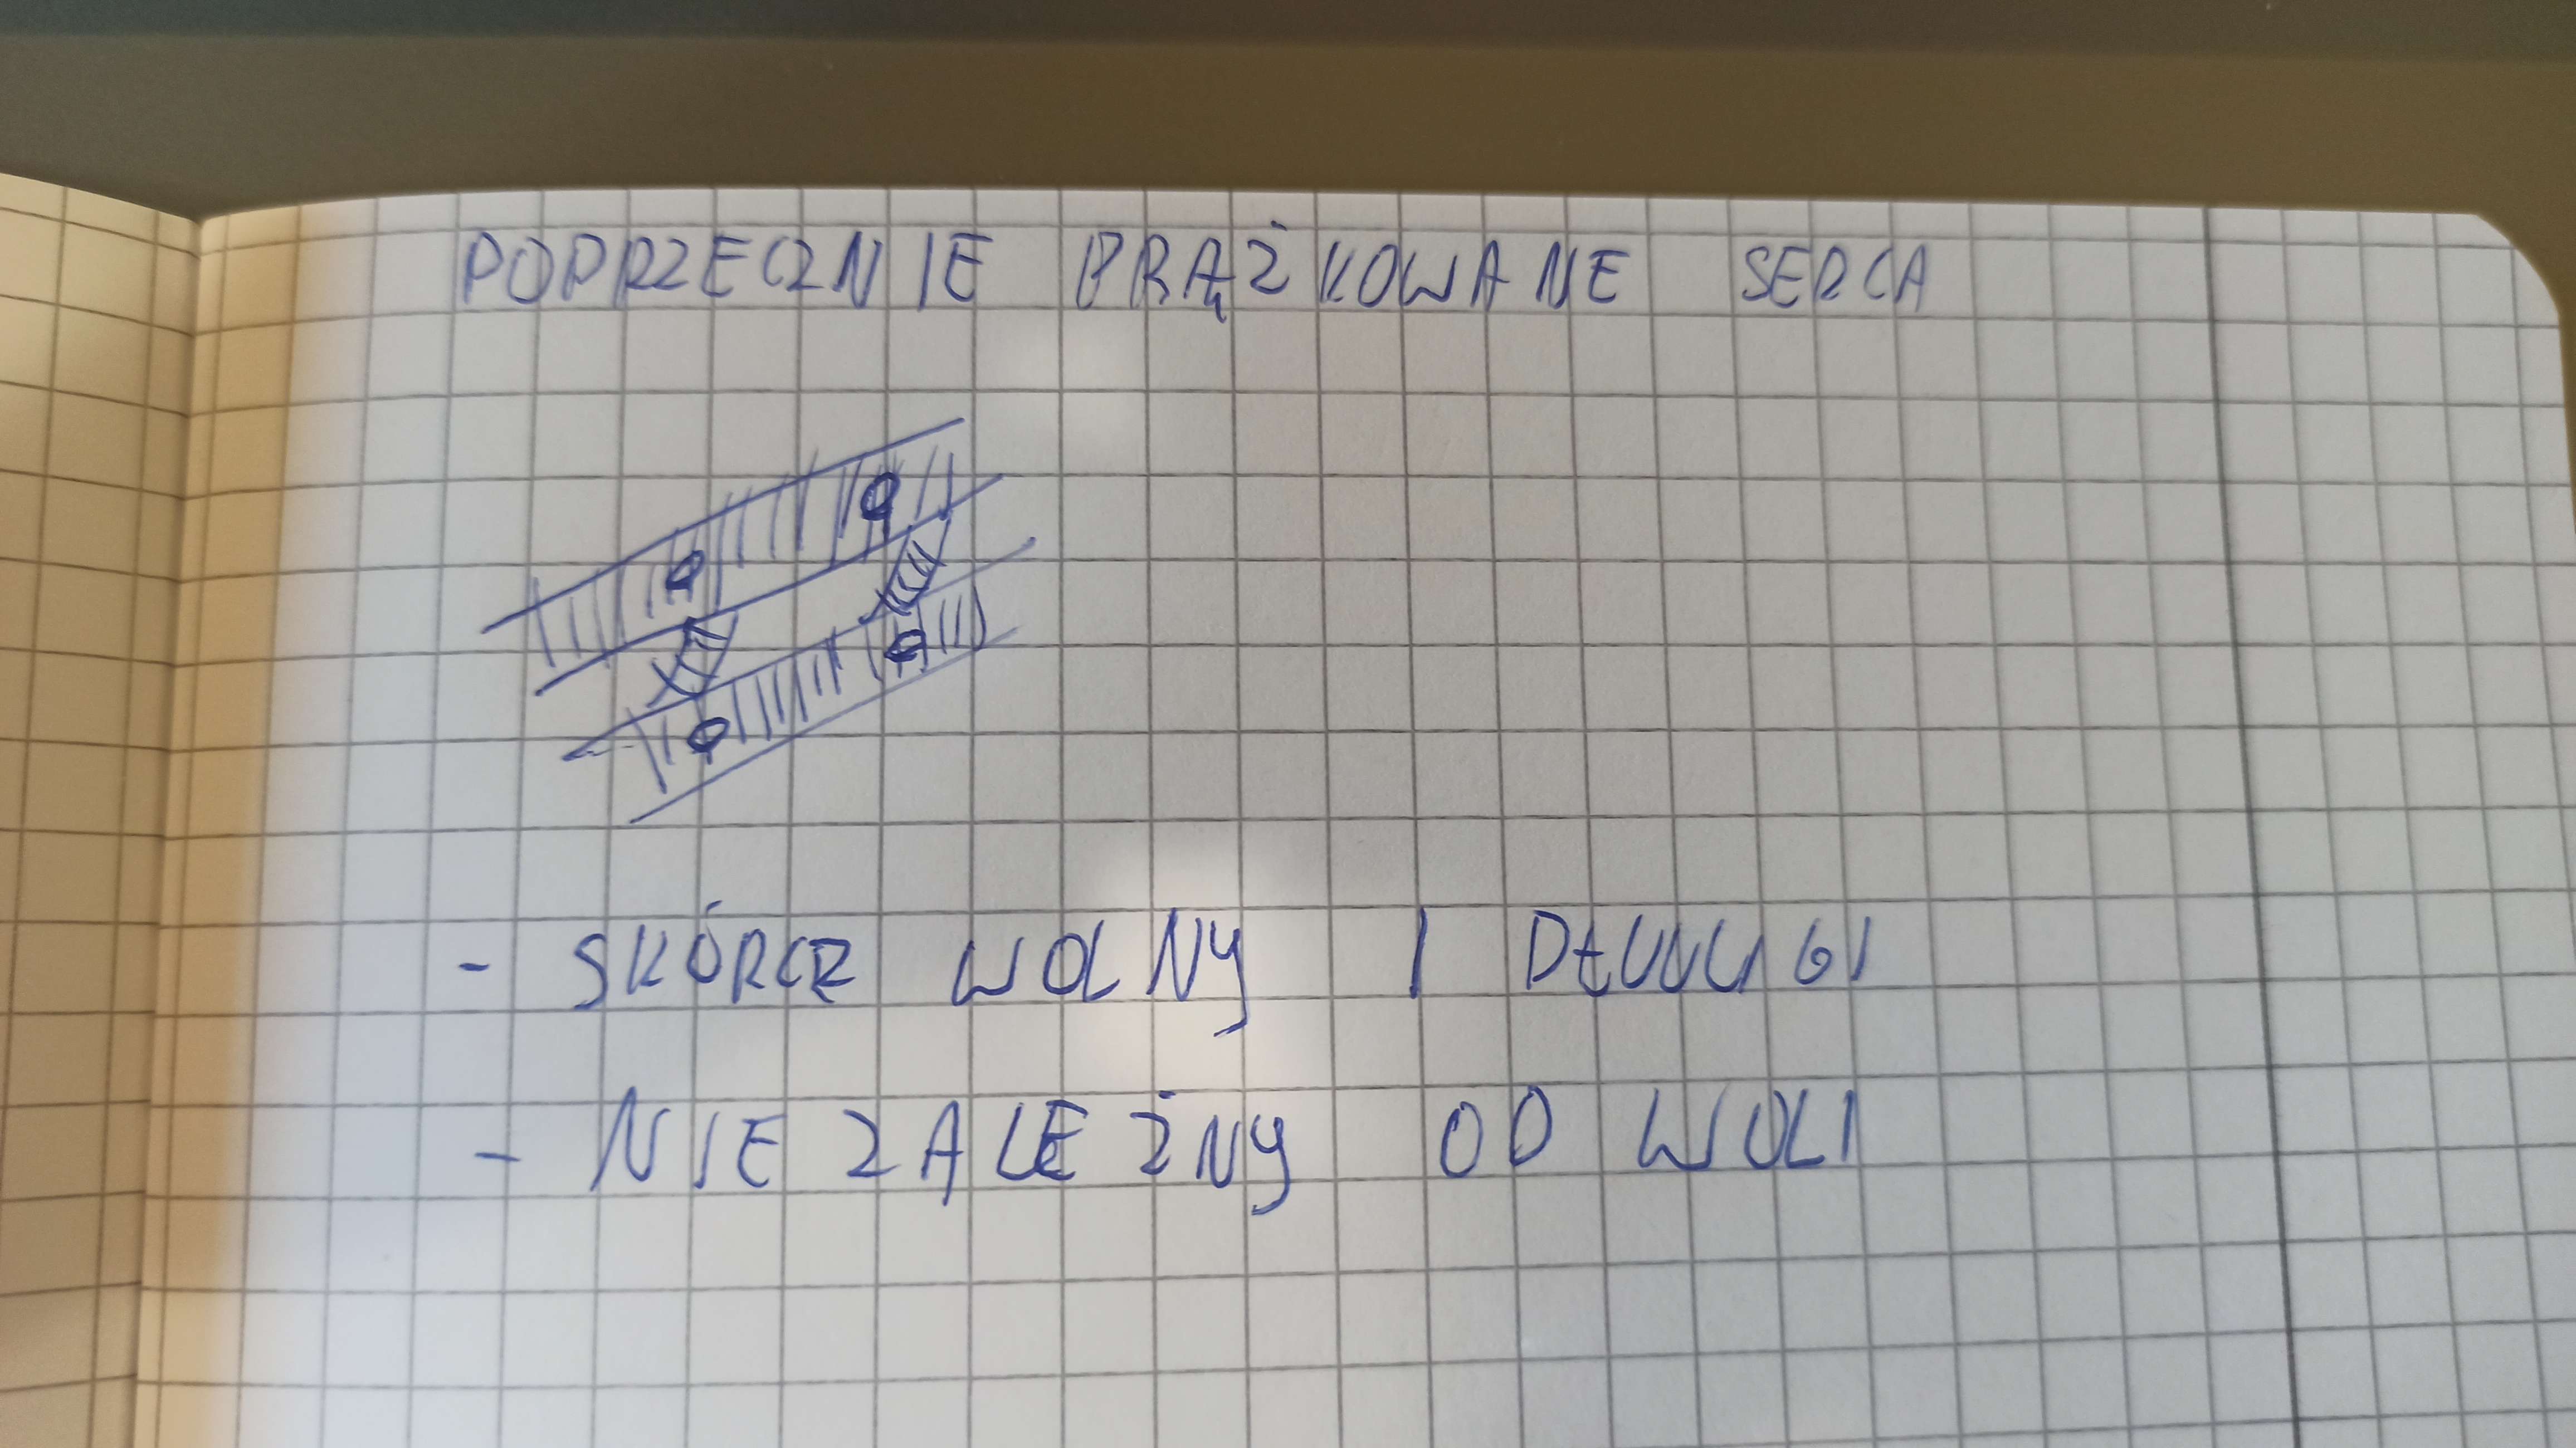 POPRZECZNIE PRĄŻKOWANE SERCA
- SKÓRCZ WOLNY I DŁUUUGI
- NIEZALEŻNY OD WOLI